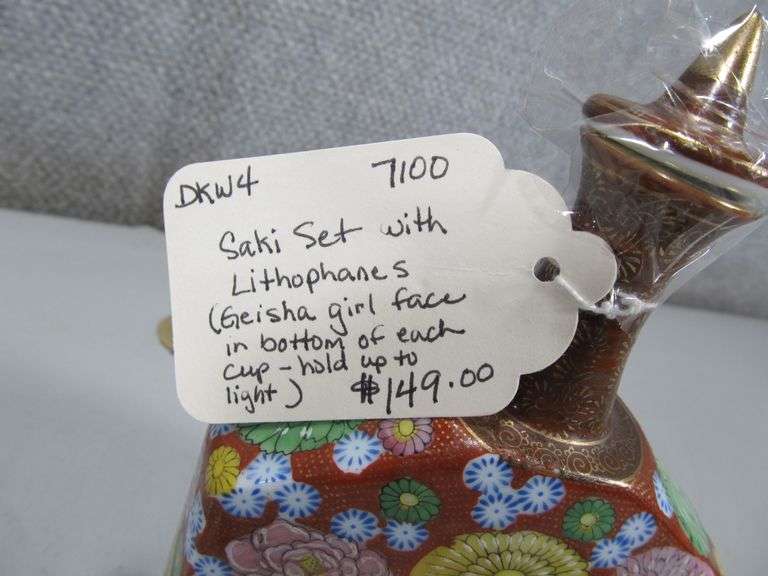 DKW4 7100
Saki Set with
Lithophanes
(Geisha girl face
in bottom of each
cup - hold up to
light) $149.00